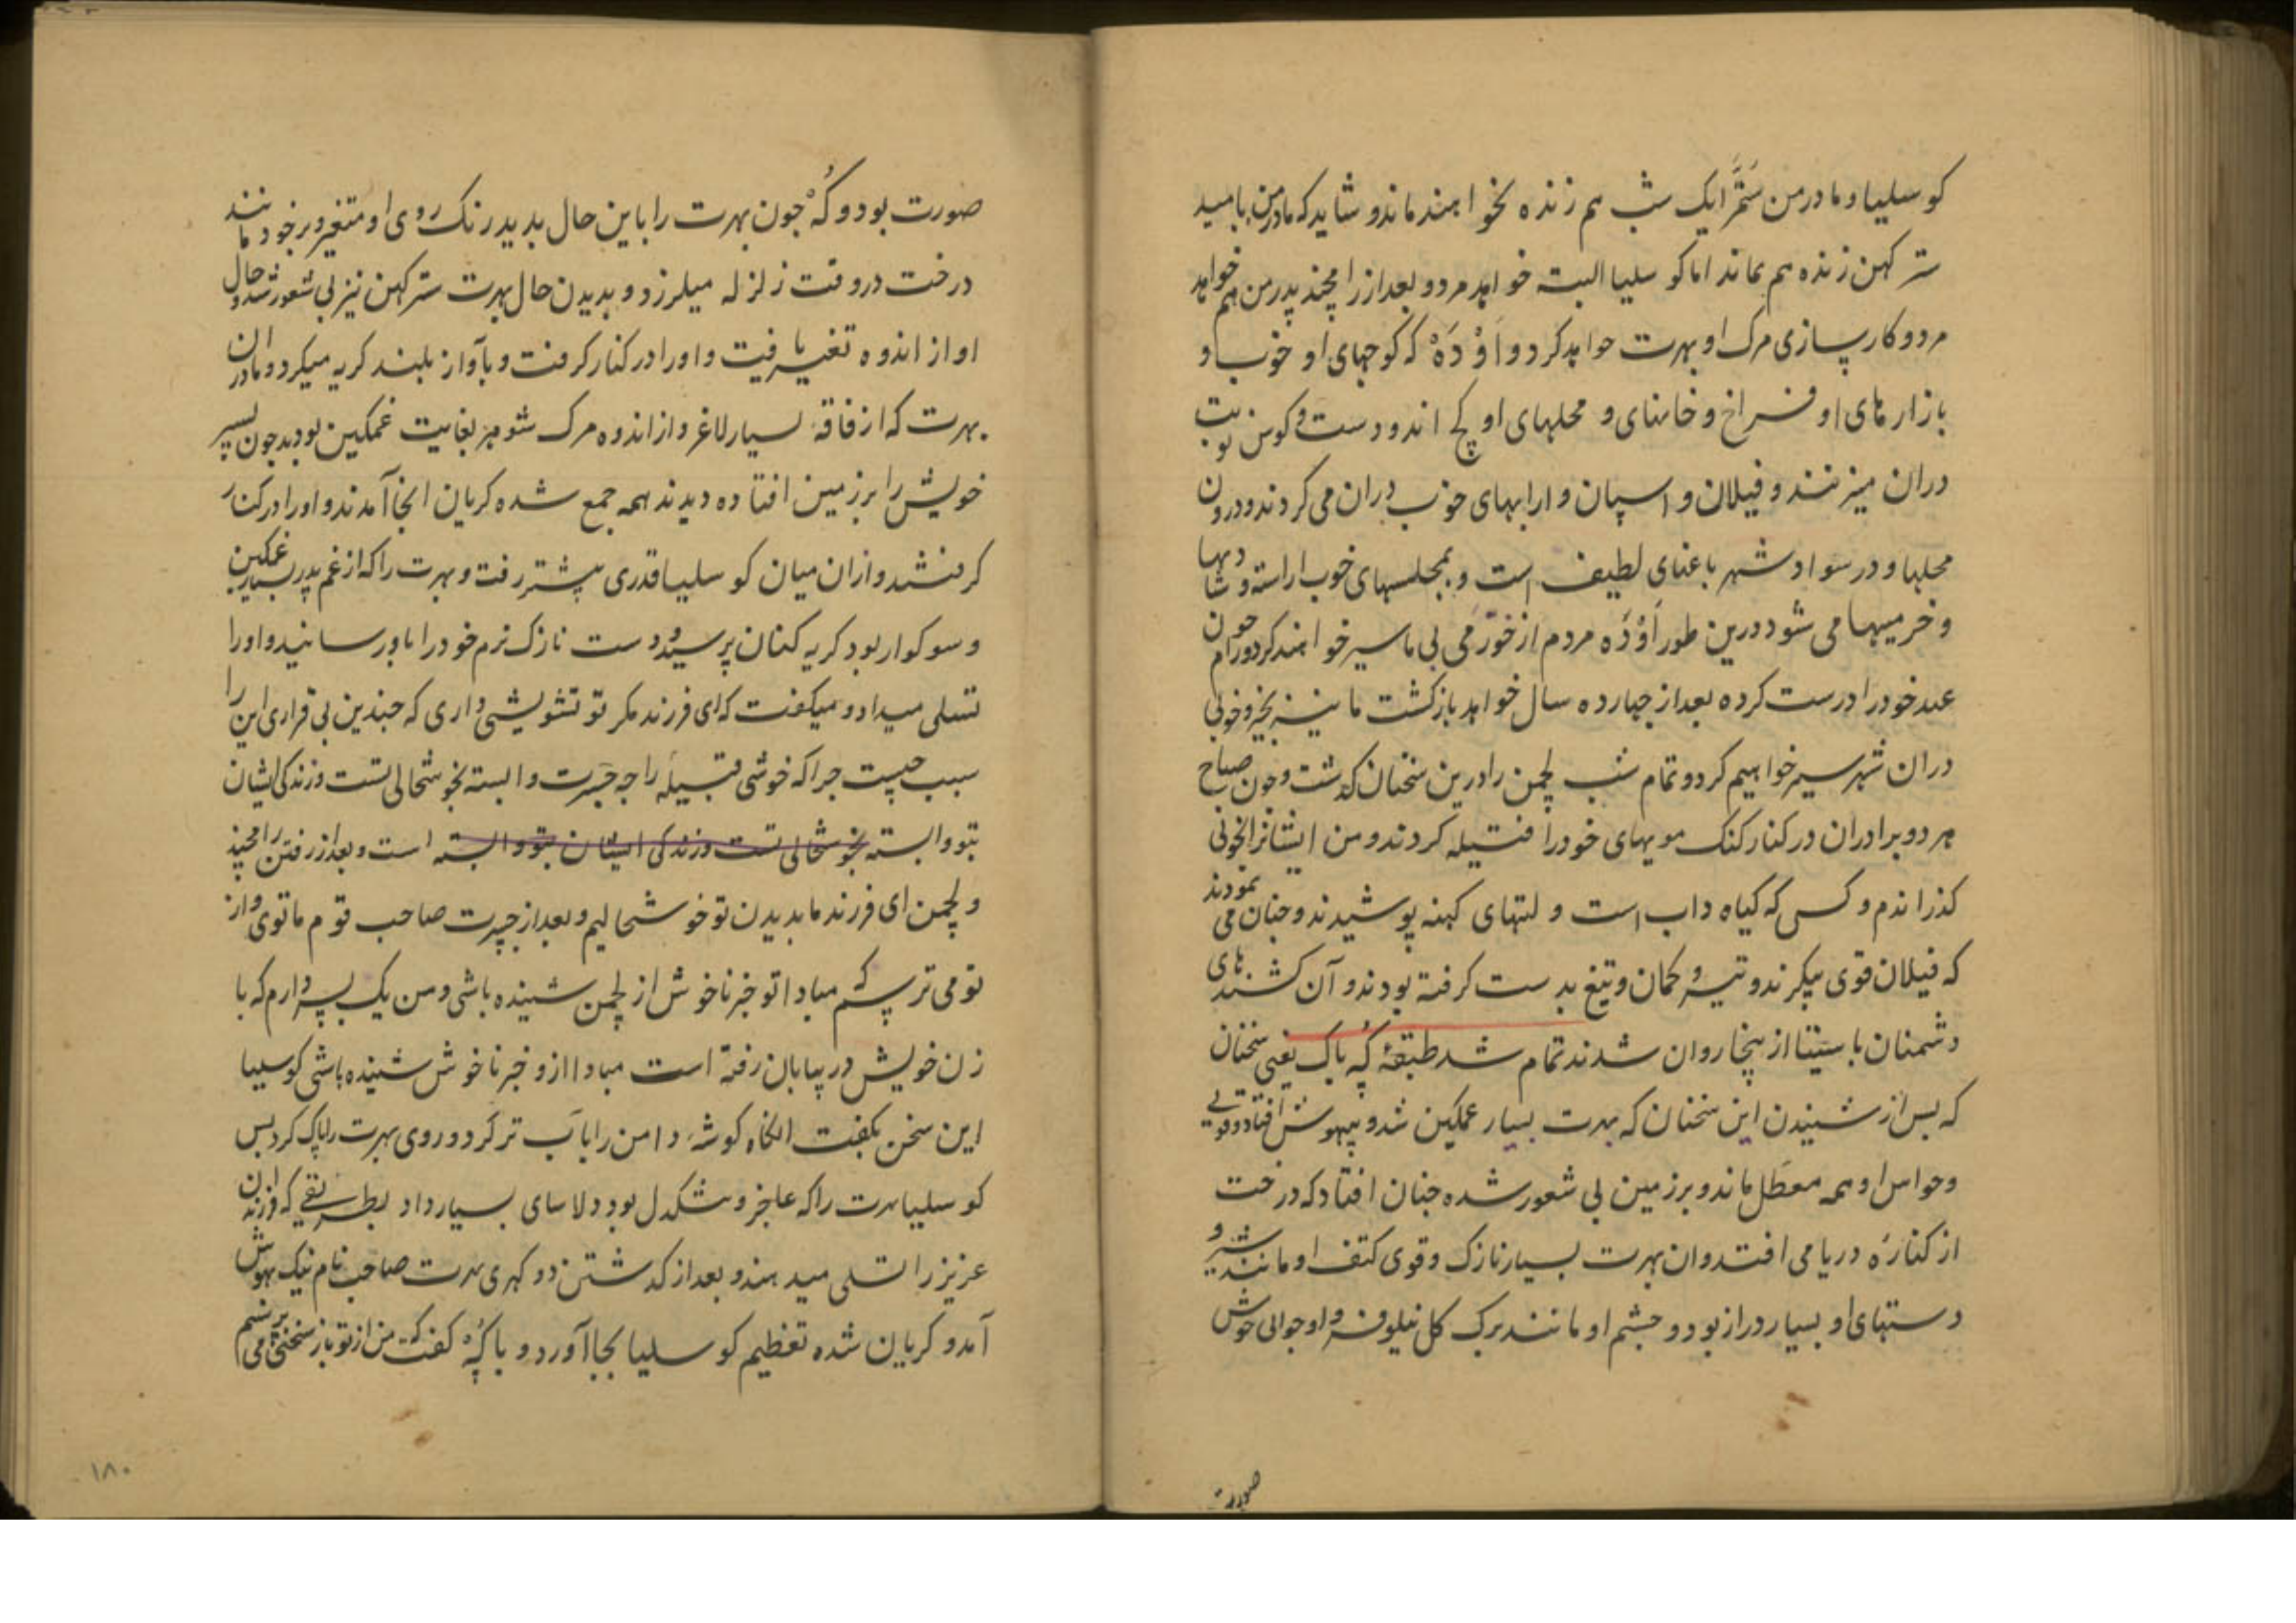 کوسلیا و مادر من سَتُمَّرا یک شب هم زنده نخواهند ماند و شاید که مادر من بامید
سترکهن زنده هم بماند اما کوسلیا البته خواهد مرد و بعد از رامچند پدر من هم خواهد
مرد و کارسازی مرک او بهرت خواهد کرد و اَوْدَهْ که کوچهای او خوب و
بازارهای او فراخ و خانهای و محلهای او کچ اند و دست و کوس نوبت
دران میزنند و فیلان و اسپان و ارابهای خوب دران می کردند و درون
محلها و در سواد شهر باغهای لطیف است و بمجلسهای خوب اراسته و شادیها
و خرمیها می شود درین طور اَوْدَه مردم از خورمی بی ما سیر خواهند کرد و رام چون
عهد خود را درست کرده بعد از چهارده سال خواهد بازکشت ما نیز بخیر و خوبی
دران شهر سیر خواهیم کرد و تمام شب لچمن را درین سخنان کذشت و چون صباح
هر دو برادران در کنار کنک مویهای خود را فتیله کردند و من ایشانرا بخوبی
کذراندم و کسی که کیاه داب است و لتهای کهنه پوشیدند و چنان می نمودند
که فیلان قوی پیکرند و تیر و کمان و تیغ بدست کرفته بودند و آن کشندهای
دشمنان با ستینا از پنجا روان شدند تمام شد طبقهٔ کُه باک یعنی سخنان
که پس از شنیدن این سخنان که بهرت بسیار غمکین شد و بیهوش افتاد و قوتی
و حواس او همه معطل ماند و بر زمین بی شعور شده چنان افتاد که درخت
از کنارَه دریا می افتد و ان بهرت بسیار نازک و قوی کتف او مانند شیر و
دستهای او بسیار دراز بود و چشم او مانند برک کل نیلوفر و او جوانی خوش
صورت
صورت بود و کُهْ چون بهرت را باین حال بدید رنک روی او متغیر و بر خود مانند
درخت در وقت زلزله میلرزد و بدیدن حال بهرت سترکهن نیز بی شعور شد و حال
او از اندوه تغیر یافت و او را در کنار کرفت و بآواز بلند کریه میکرد و مادران
بهرت که از فاقه بسیار لاغر و از اندوه مرک شوهر بغایت غمکین بودند چون پسر
خویش را بر زمین افتاده دیدند همه جمع شده کریان انجا آمدند و او را در کنار
کرفتند و ازان میان کوسلیا قدری پیشتر رفت و بهرت را که از غم پدر بسیار غمکین
و سوکوار بود کریه کنان پرسید و دست نازک نرم خود را باو رسانید و او را
تسلی میداد و میکفت که ای فرزند مکر تو تشویشی داری که چندین بی قراری این را
سبب چیست چرا که خوشی قبیله راجه جَسرت وابسته بخوشحالی تست و زندکی ایشان
بتو وابسته بخوشحالی تست و زندکی ایشان بتو وابسته است و بعد از رفتن رامچند
و لچمن ای فرزند ما بدیدن تو خوشحالیم و بعد از جسرت صاحب قوم ما توی و از
تو می ترسم که مبادا تو خبر ناخوش از لچمن شنیده باشی و من یک پسر دارم که با
زن خویش در بیابان رفته است مبادا ازو خبر ناخوش شنیده باشی کوسلیا
این سخن بکفت انکاه کوشهٔ دامن را بآب تر کرد و روی بهرت را پاک کرد پس
کوسلیا بهرت را که عاجز و تنکدل بود دلاسای بسیار داد بطریقی که زنان فرزند
عزیز را تسلی میدهند و بعد از کذشتن دو کهری بهرت صاحب نام نیک بهوش
آمد و کریان شده تعظیم کوسلیا بجا آورد و با کُهْ کفت که من از تو باز سخنی می پرسم
۱۸۰